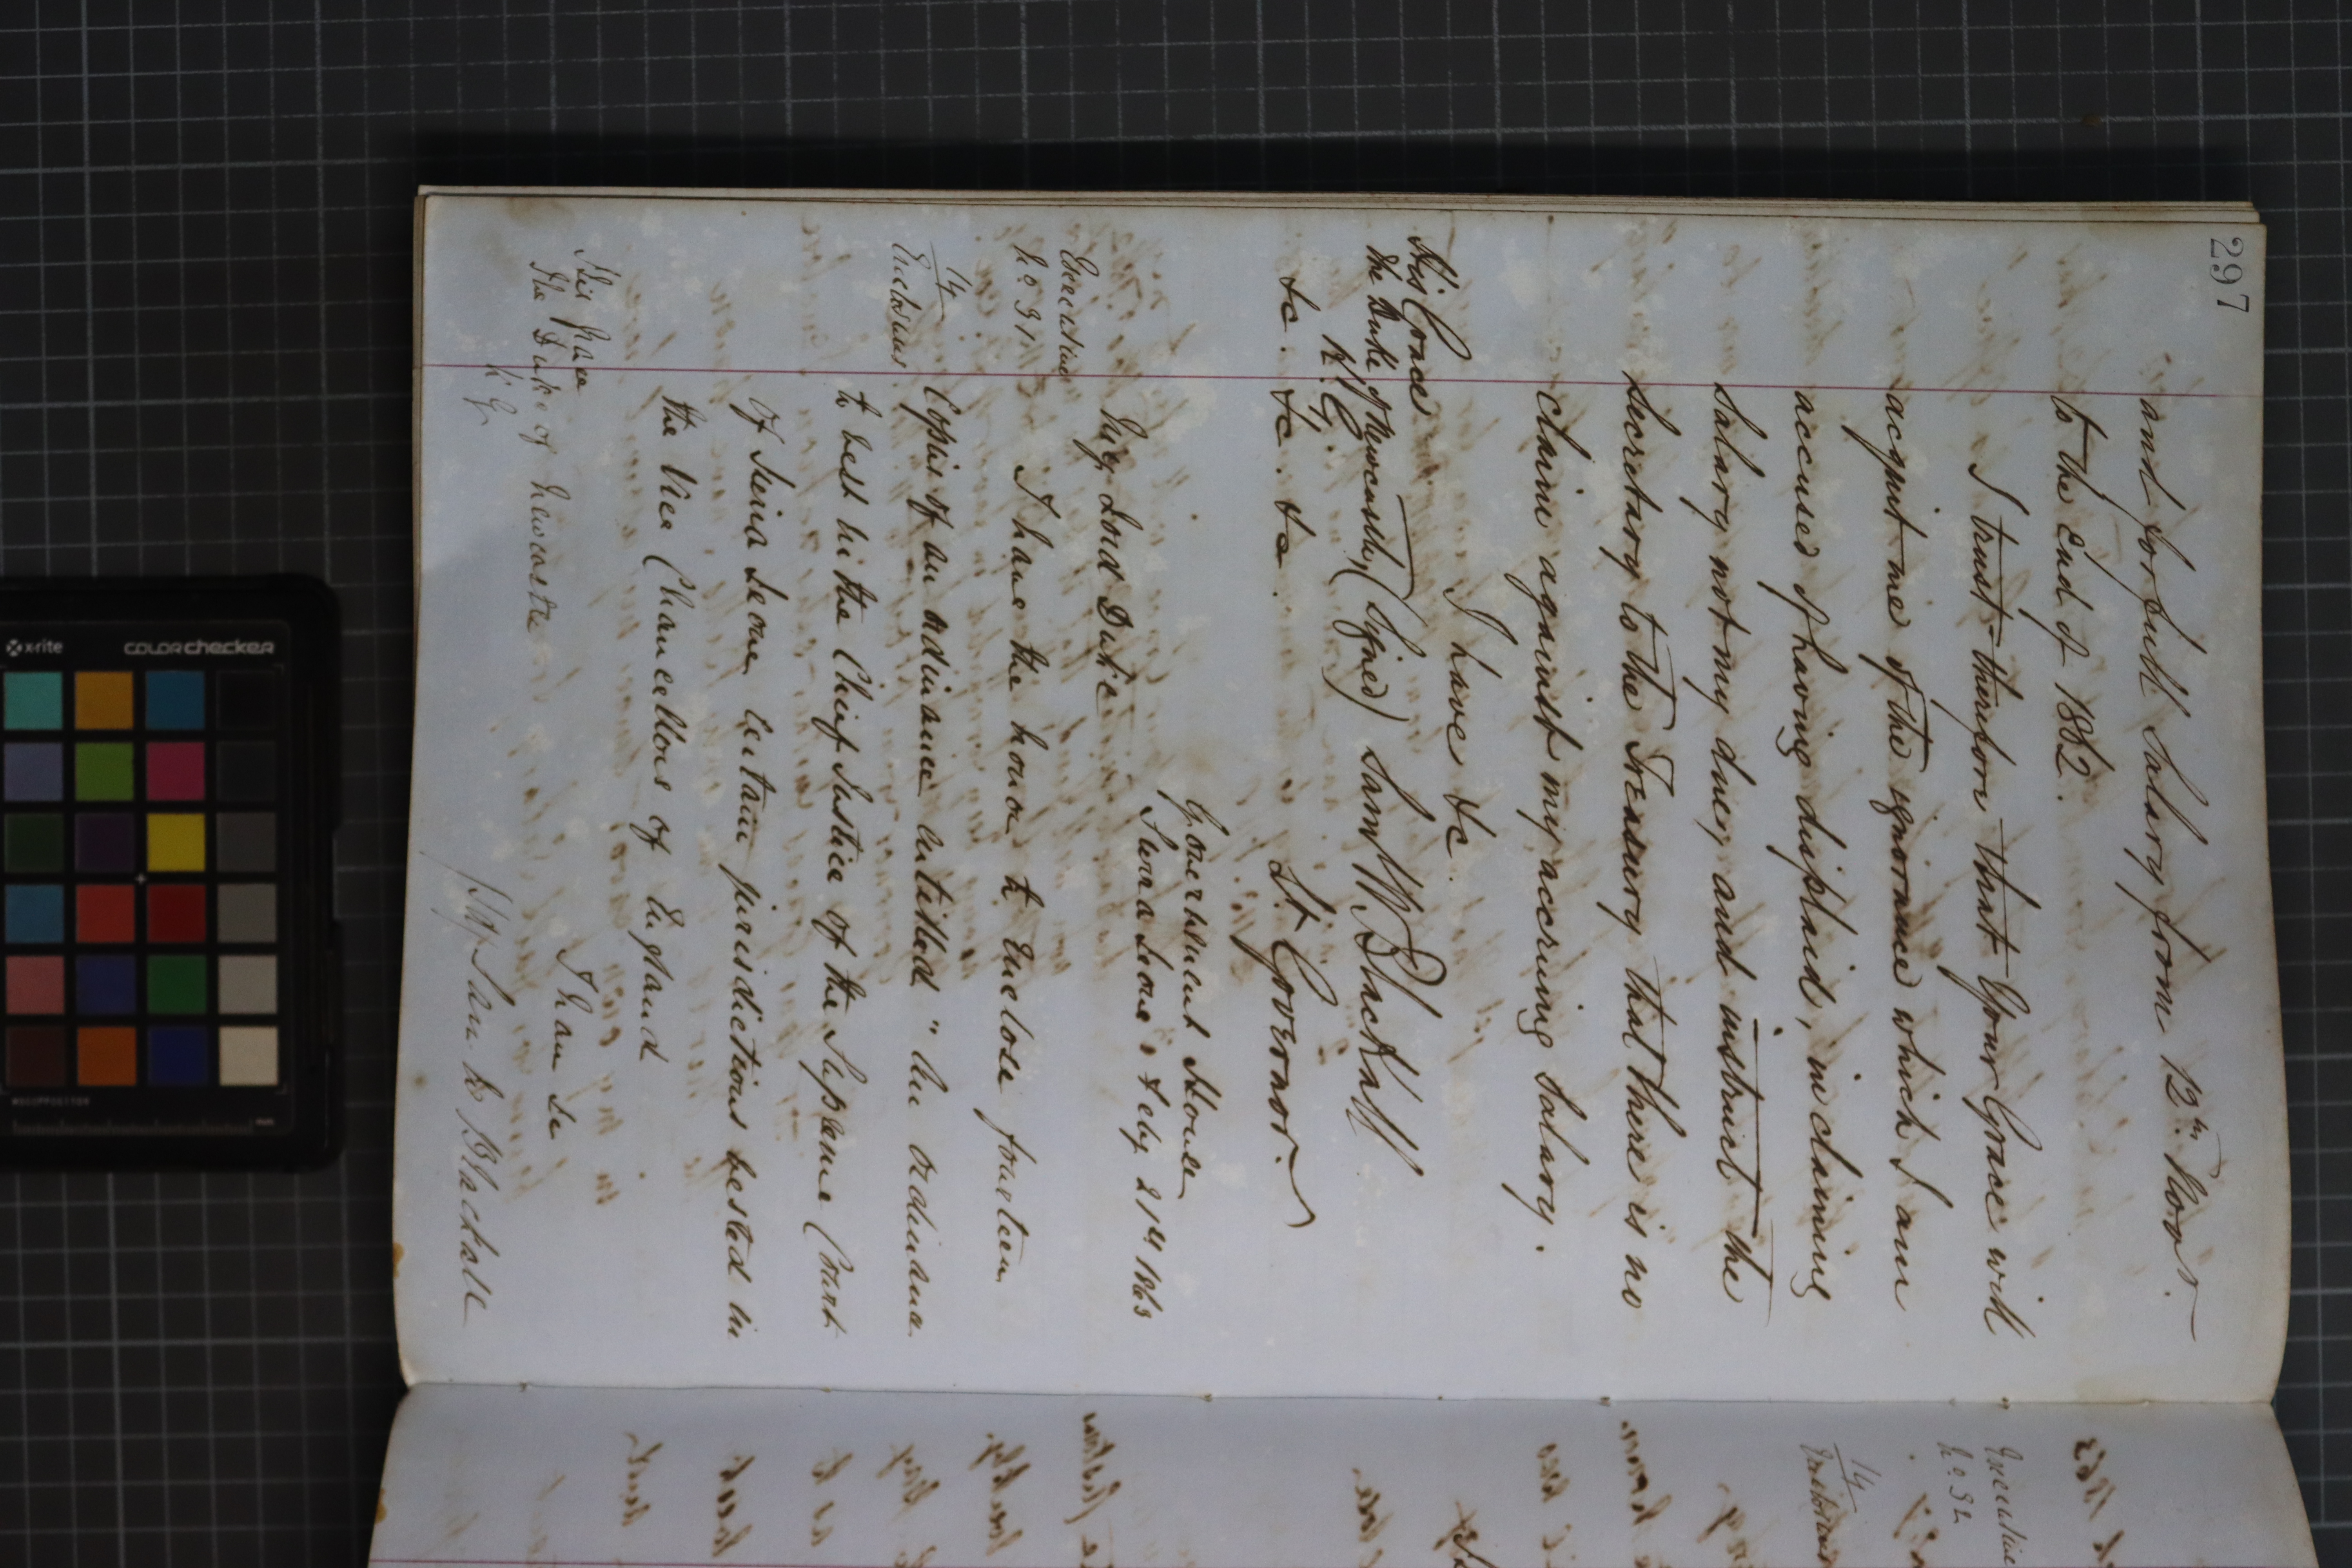 297
and for full Salary from 12th Novr.
to the End of 1862.
I trust therefore that Your Grace will
acquit me of the ignorance which I am
accused of having displaid, in claiming
Salary not my due, and instruct the
Secretary to the Treasury that there is no
claim against my accruing Salary.
I have &c.
His Grace
The Duke of Newcastle, (Signed) Saml W Blackall
K. G.
&c. &c. &c. Lt. Governor.
Government House
Sierra Leone, Feby 21st 1863
My Lord Duke
Executive
No 91
14
Enclosures
I have the honor to Enclose fourteen
Copies of an ordinance entitled "An ordinance
to vest in the Chief Justice of the Supreme Court
of Sierra Leone certain jurisdictions vested in
the Vice Chancellors of England
I have &c
His Grace
The Duke of Newcastle
K. G.
(Sg) Sam W Blackall
1863
Executive
No 92
14
Enclosures
x-rite
colorchecker